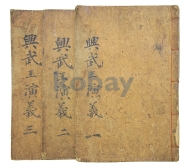 興武王演義 一
興武王演義 二
興武王演義 三
Kobay